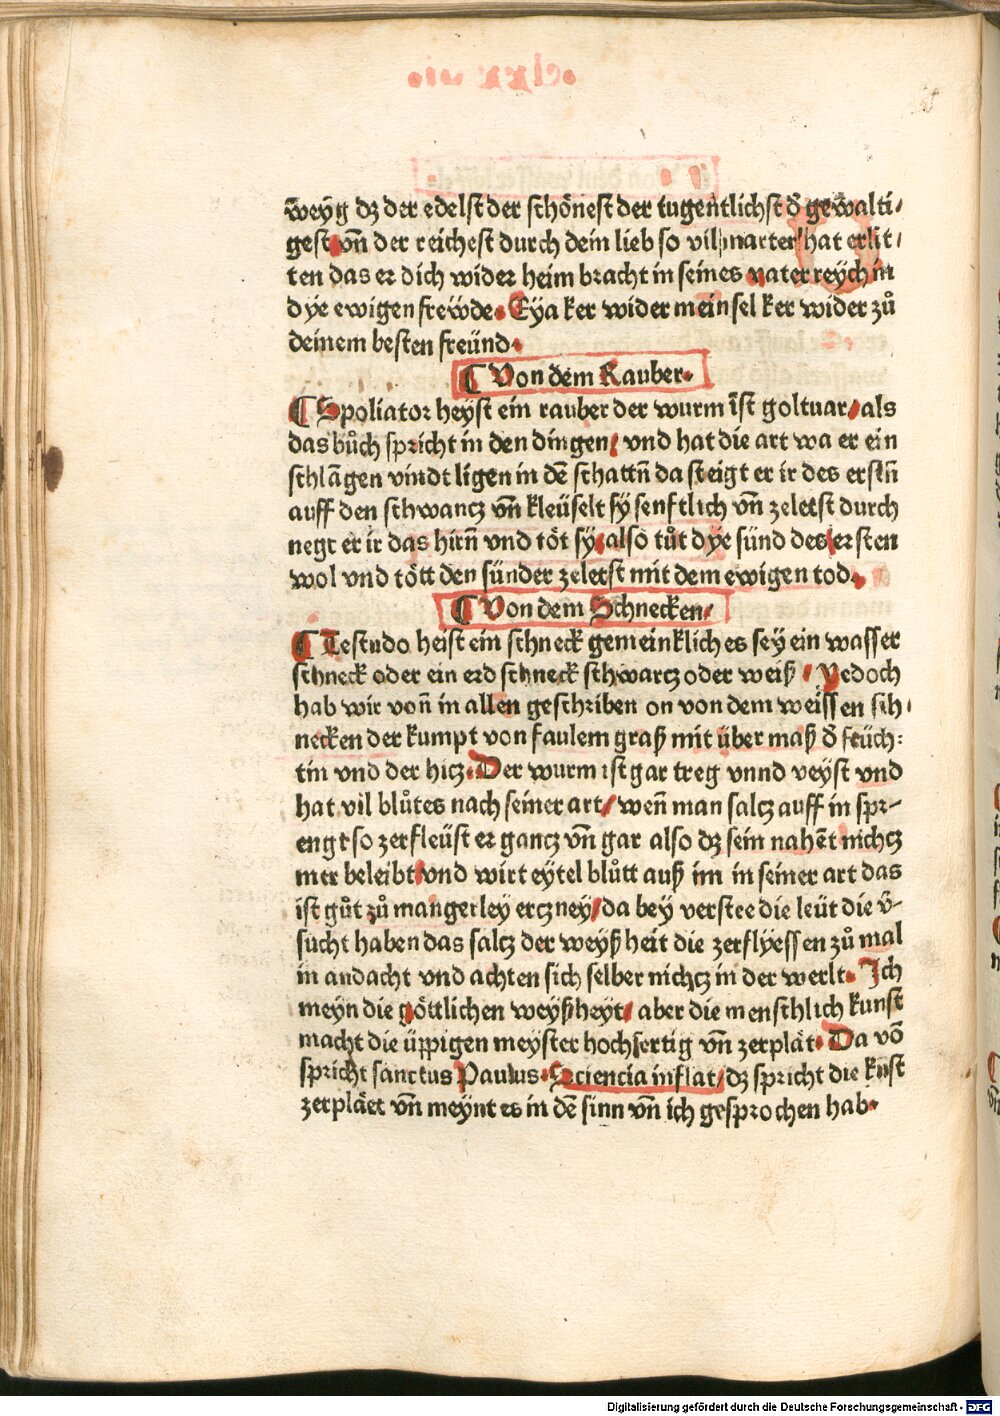 w̃eÿg dz der edelst der schönest der tugentlichst d̕ gewalti/
gest vñ der reichest durch dein lieb so vil marter hat erlit/
ten das er dich wider heim bracht in seines vater reÿch in
dÿe ewigen frewde. Eÿa ker wider mein sel ker wider zů
deinem besten freünd.
¶ Von dem Rauber.
¶ Spoliator heÿst ein rauber der wurm ist goltuar/ als
das bůch spricht in den dingen/ vnd hat die art wa er ein
schlãgen vindt ligen in dẽ schattñ da steigt er ir des erstñ
auff den schwancz vñ kleüselt sÿ senftlich vñ zeletst durch
negt er ir das hirñ vnd töt sÿ/ also tůt dÿe sünd des ersten
wol vnd tött den sünder zeletst mit dem ewigen tod.
¶ Von dem Schnecken/
¶ Testudo heist ein schneck gemeinklich es sey ein wasser
schneck oder ein erd schneck schwarcz oder weiß / Yedoch
hab wir voñ in allen geschriben on von dem weissen sch/
necken der kumpt von faulem graß mit über maß d̕ feüch:
tin vnd der hicz. Der wurm ist gar treg vnnd veÿst vnd
hat vil blůtes nach seiner art/ weñ man salcz auff in spr-
engt so zerfleüst er gancz vñ gar also dz sein nahẽt nichcz
mer beleibt/ vnd wirt eÿtel blůtt auß im in seiner art das
ist gůt zů mangerley erczney/ da beÿ verstee die leüt die v̕-
sucht haben das salcz der weÿßheit die zerflÿessen zů mal
in andacht vnd achten sich selber nichcz in der werlt. Ich
meÿn die göttlichen weÿßheyt/ aber die menschlich kunst
macht die üppigen meÿster hochfertig vñ zerplät. Da võ
spricht sanctus Paulus. Sciencia inflat/ dz spricht die kũst
zerpläet vñ meÿnt es in dẽ sinn vñ ich gesprochen hab.
Digitalisierung gefördert durch die Deutsche Forschungsgemeinschaft - DFG